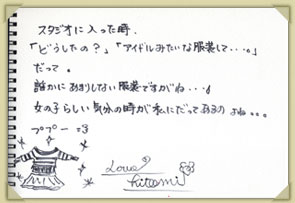 スタジオに入った時.
「どうしたの？」「アイドルみたいな服装して・・・。」
だって。
誰かにあまりしない服装ですがね・・・。
女の子らしい気分の時が私にだってあるのよね。。。
プププー =3
Love
hitomi